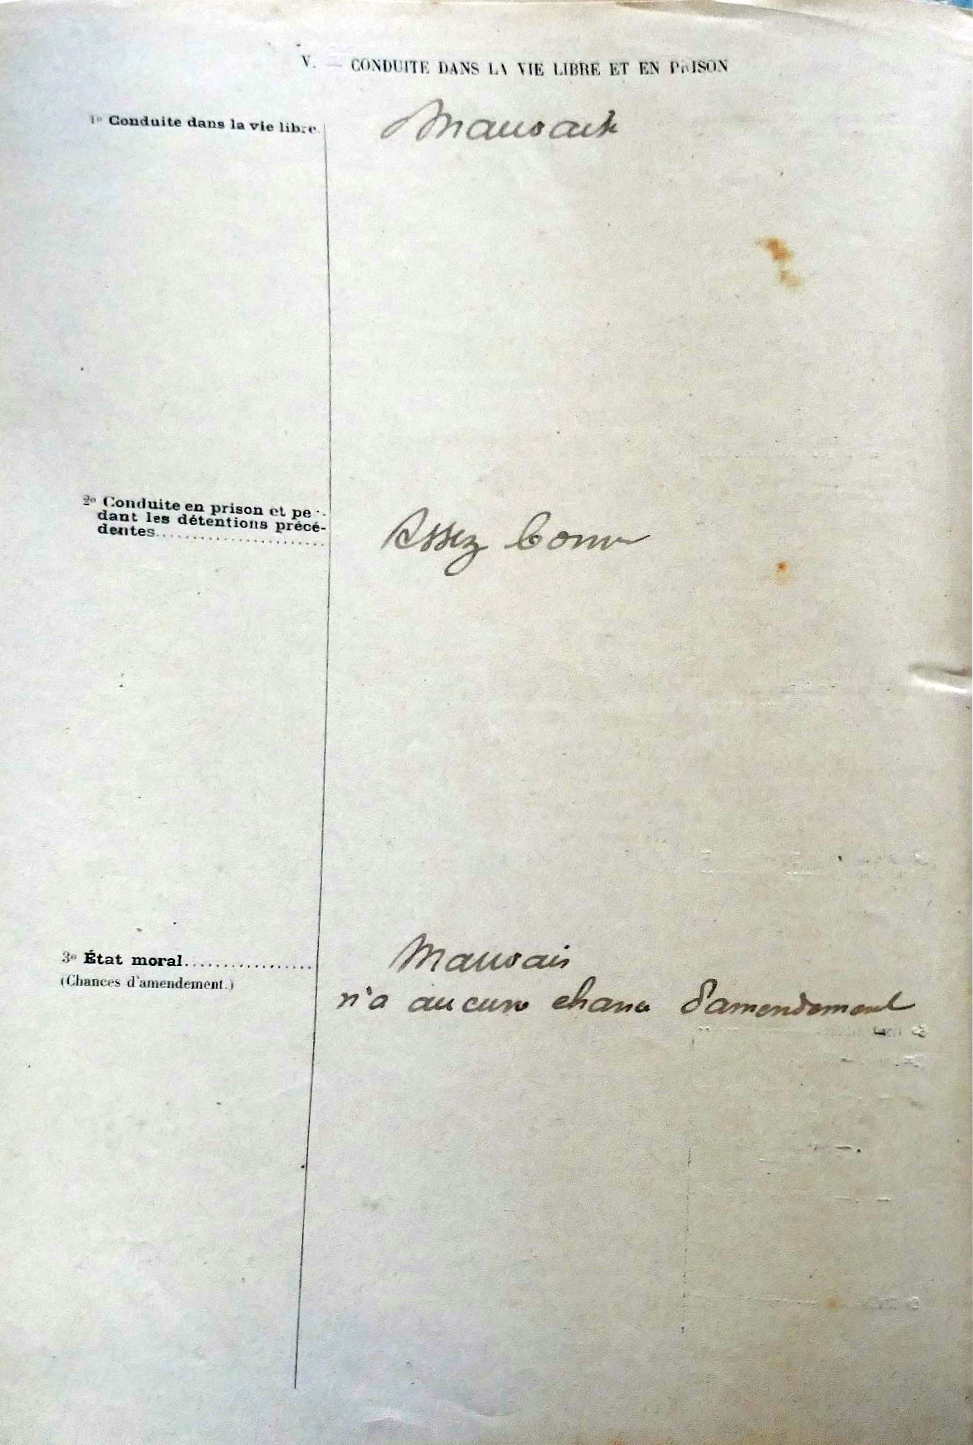 V. — CONDUITE DANS LA VIE LIBRE ET EN PRISON
1º Conduite dans la vie libre.
Mauvaise
2º Conduite en prison et pen-
dant les détentions précé-
dentes......................
Assez bonne
3º État moral.................
(Chances d'amendement.)
Mauvais
n'a aucune chance d'amendement